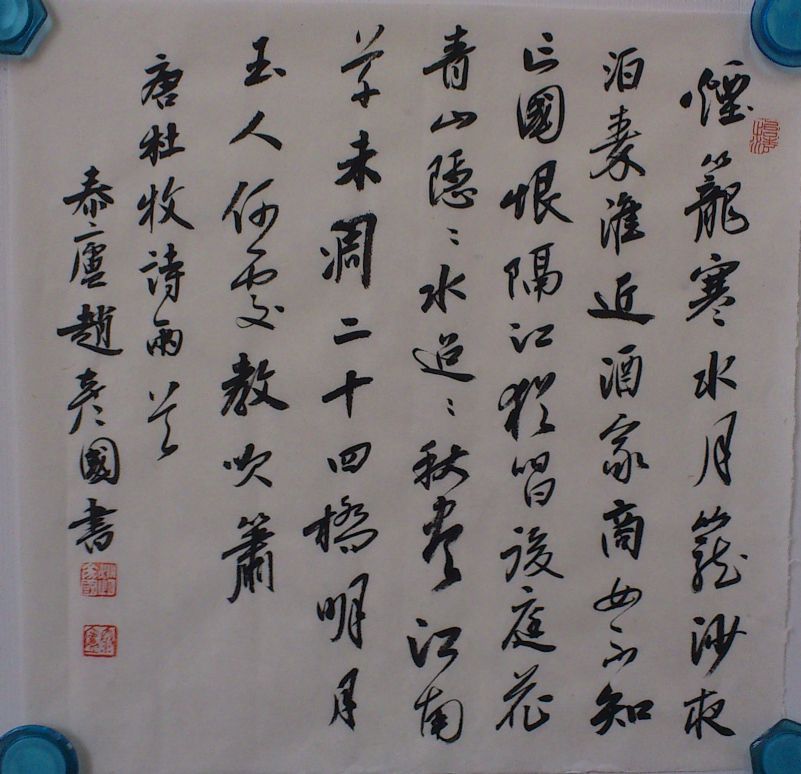 煙籠寒水月籠沙夜
泊秦淮近酒家商女不知
亡國恨隔江猶唱後庭花
青山隱〻水迢〻秋盡江南
草未凋二十四橋明月
玉人何處教吹簫
唐杜牧詩兩首
泰廬趙彥國書